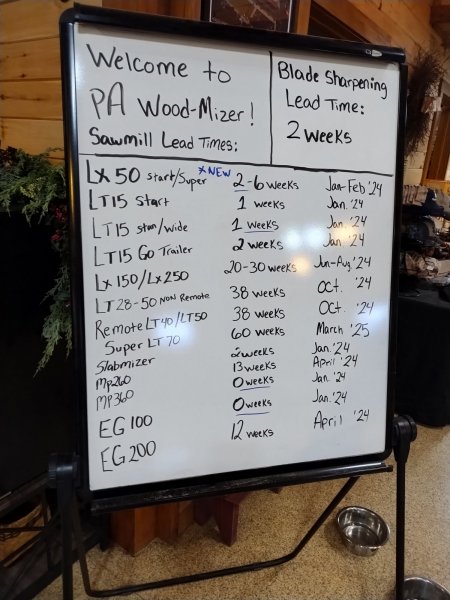 Welcome to
PA Wood-Mizer!
Sawmill Lead Times:
Blade Sharpening
Lead Time:
2 weeks
LX50 start/Super *NEW 2-6 weeks Jan-Feb '24
LT15 start 1 weeks Jan. '24
LT15 stan/wide 1 weeks Jan '24
LT15 Go Trailer 2 weeks Jan '24
Lx150/Lx250 20-30 weeks Jun-Aug '24
LT28-50 Non Remote 38 weeks Oct. '24
Remote LT40/LT50 38 weeks Oct. '24
Super LT70 60 weeks March '25
Slabmizer 2 weeks Jan. '24
Mp260 13 weeks April '24
MP360 0 weeks Jan. '24
EG100 0 weeks Jan. '24
EG200 12 weeks April '24